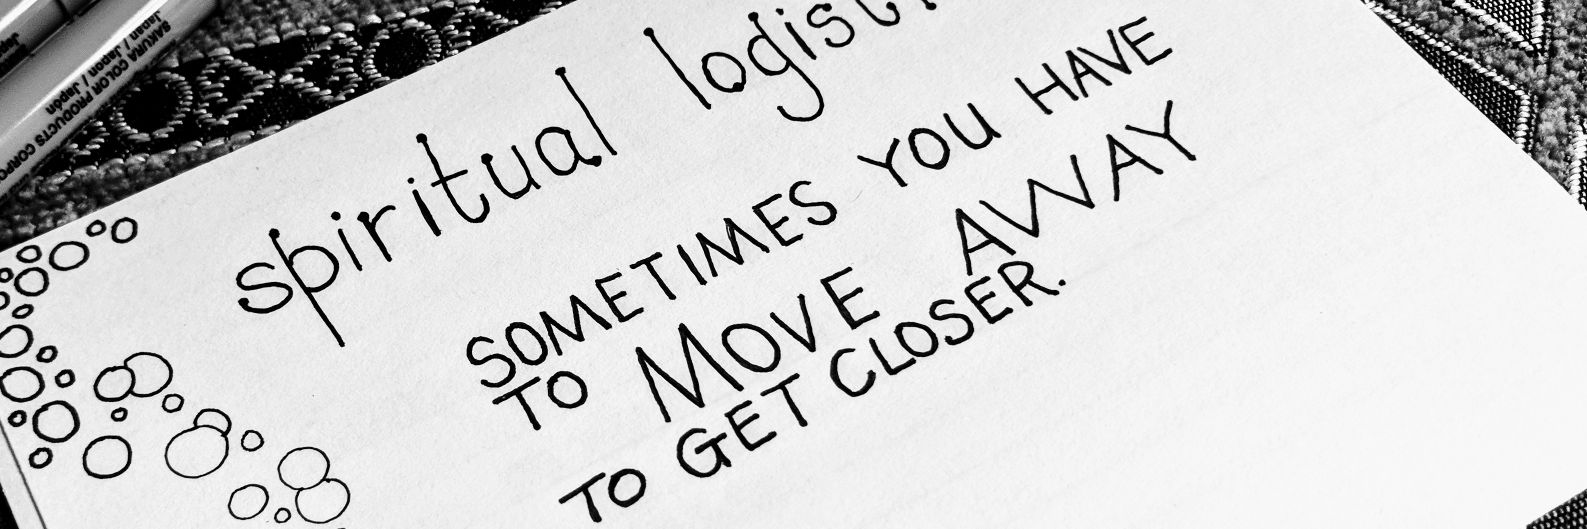 spiritual logist
SOMETIMES YOU HAVE
TO MOVE AWAY
TO GET CLOSER.
SAKURA COLOR PRODUCTS CORPO
Japan / Japon / Japón